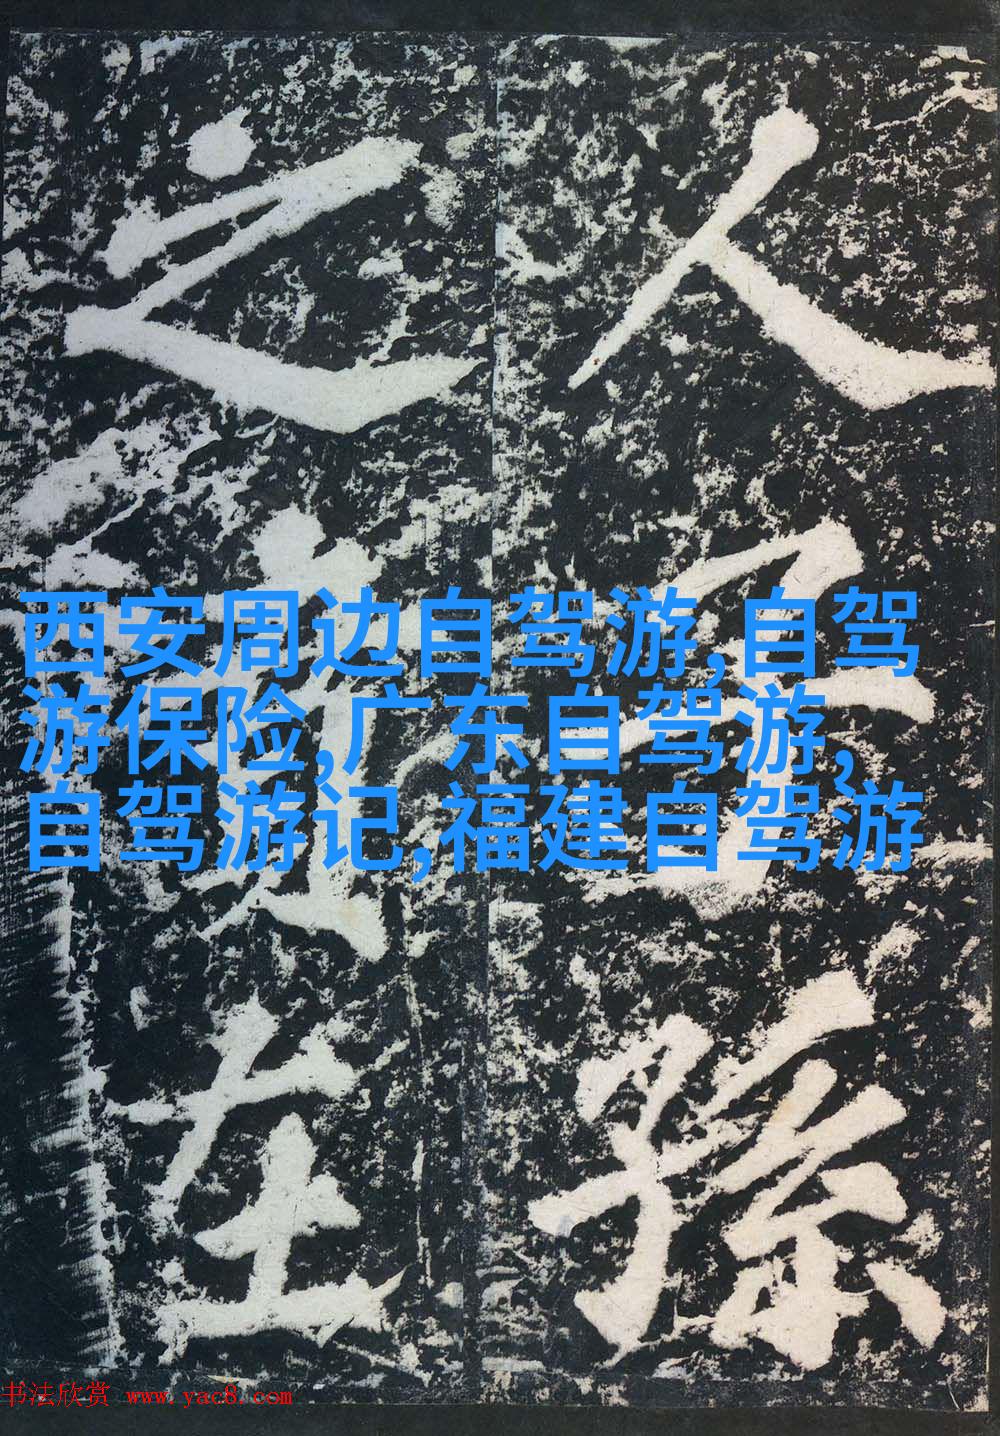 人
孫
之
在
西安周边自驾游,自驾
游保险,广东自驾游,
自驾游记,福建自驾游
书法欣赏 www.yac8.com